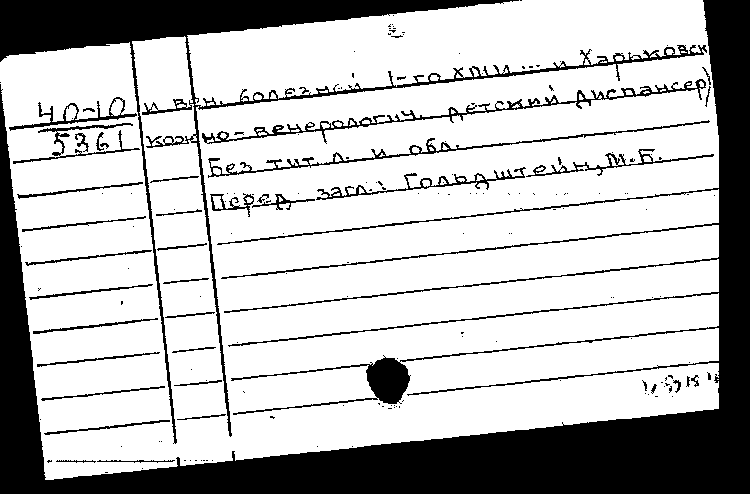 40-10
5361
и вен. болезней 1-го ХМИ ... и Харьковск
кожно-венерологич. детский диспансер)
Без тит. л. и обл.
Перед загл.: Гольдштейн, М.Б.